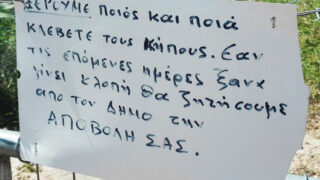 ΞΕΡΟΥΜΕ ποιός και ποιά
ΚΛΕΒΕΤΕ τους Κήπους. Εαν
τις επόμενες ημέρες ξανα
γίνει κλοπή θα ζητήσουμε
απο τον ΔΗΜΟ την
ΑΠΟΒΟΛΗ ΣΑΣ.